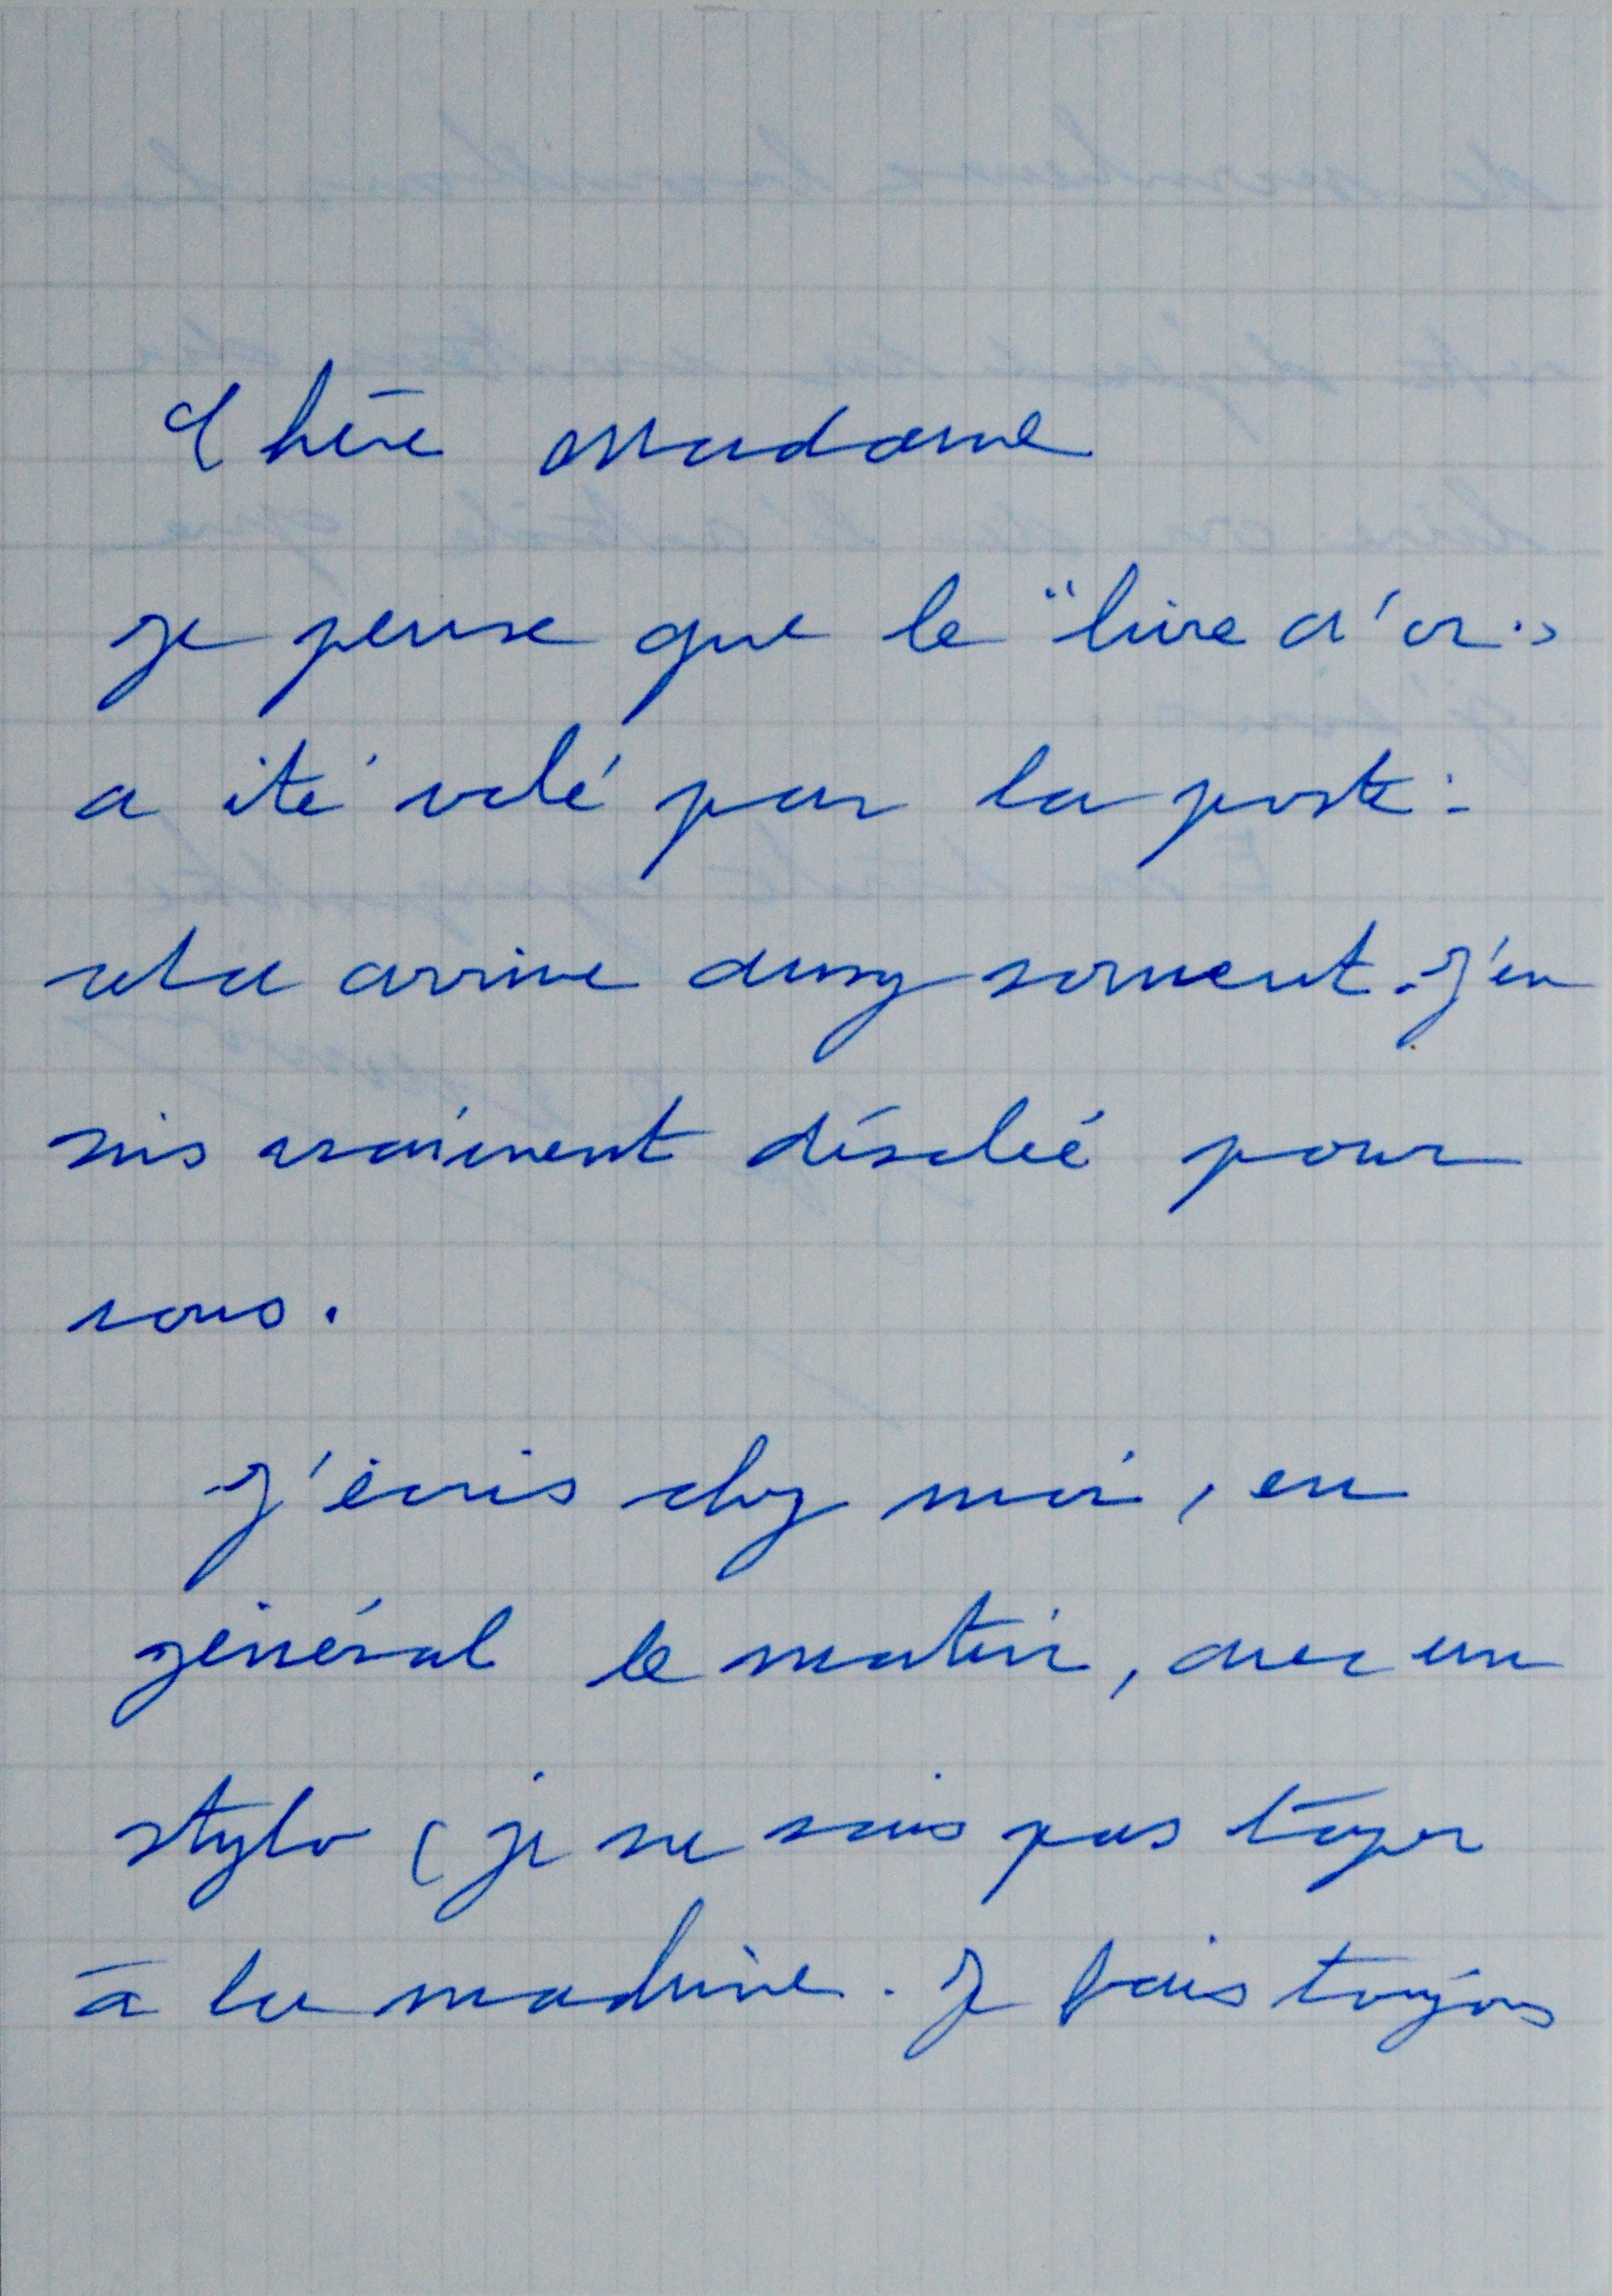 Chère Madame
je pense que le "livre d'or"
a été volé par la poste :
cela arrive assez souvent. J'en
suis vraiment désolée pour
vous.
J'écris chez moi, en
général le matin, avec un
stylo (je ne sais pas taper
à la machine. Je fais toujours